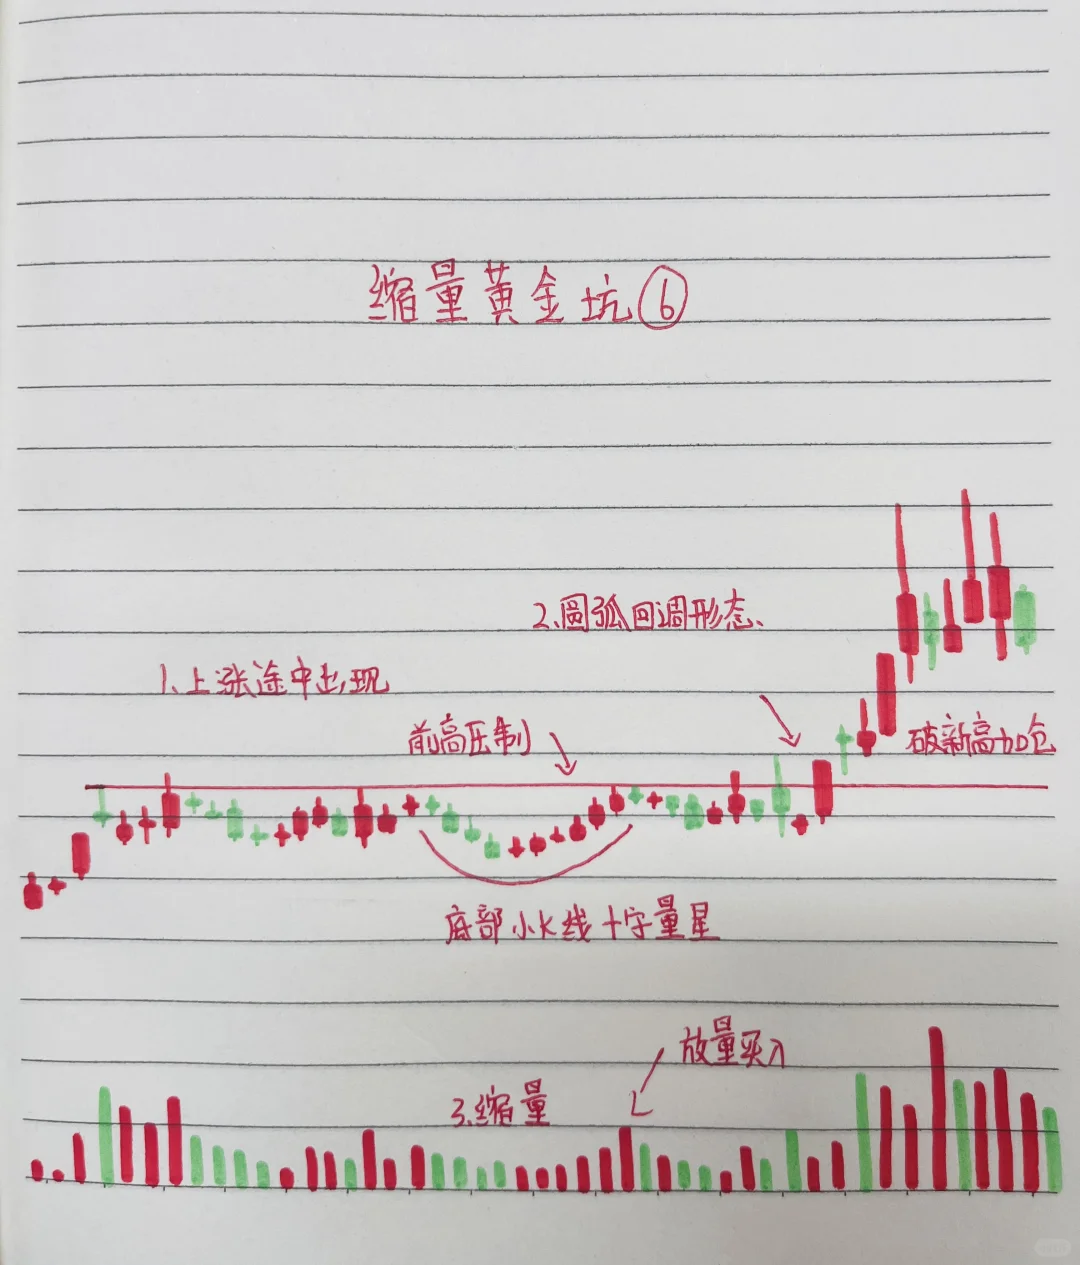 缩量黄金坑⑥
2.圆弧回调形态、
1.上涨途中出现
前高压制
破新高加仓
底部小K线十字量星
放量买入
3.缩量